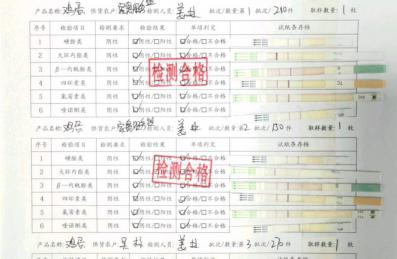 产品名称: 鸡蛋 供货农户 检测人员: 姜姝 批次/数量第 1 批次/210 取样数量: 1 枚
序号 检验项目 检测要求 检验结果 单项判定 试纸条存档
1 磺胺类 阴性 ☑阴性/☐阳性 ☑合格/☐不合格
2 大环内酯类 阴性 ☑阴性/☐阳性 ☑合格/☐不合格
3 β-内酰胺类 阴性 ☑阴性/☐阳性 ☑合格/☐不合格
4 四环素类 阴性 ☑阴性/☐阳性 ☑合格/☐不合格
5 氟苯素类 阴性 ☑阴性/☐阳性 ☑合格/☐不合格
6 喹诺酮类 阴性 ☑阴性/☐阳性 ☑合格/☐不合格
检测合格
产品名称: 鸡蛋 供货农户 检测人员: 批次/数量: 第 2 批次/150 取样数量: 1 枚
序号 检验项目 检测要求 检验结果 单项判定 试纸条存档
1 磺胺类 阴性 ☑阴性/☐阳性 ☑合格/☐不合格
2 大环内酯类 阴性 ☑阴性/☐阳性 ☑合格/☐不合格
3 β-内酰胺类 阴性 ☑阴性/☐阳性 ☑合格/☐不合格
4 四环素类 阴性 ☑阴性/☐阳性 ☑合格/☐不合格
5 氟苯素类 阴性 ☑阴性/☐阳性 ☑合格/☐不合格
6 喹诺酮类 阴性 ☑阴性/☐阳性 ☑合格/☐不合格
检测合格
产品名称: 鸡蛋 供货农户 检测人员: 批次/数量: 第 3 批次/270 取样数量: 1 枚